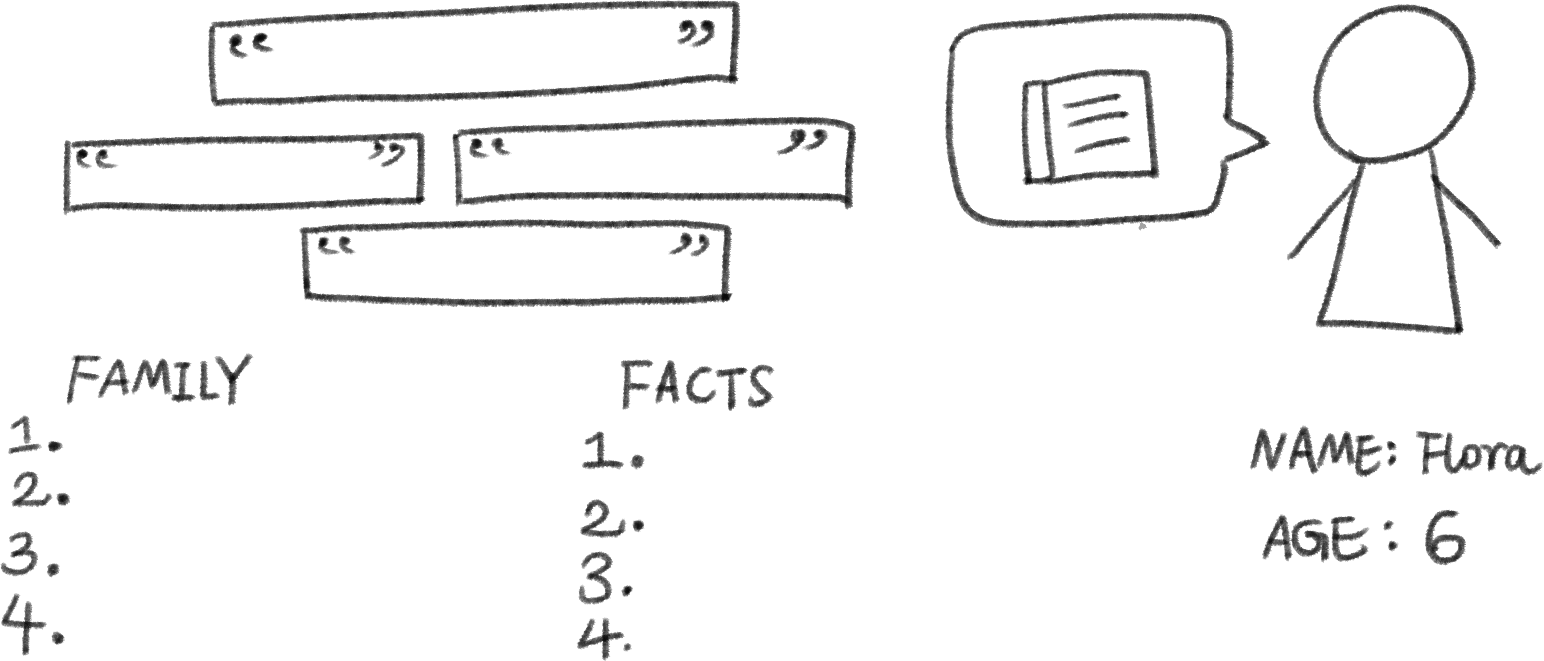 “ ”
“ ” “ ”
“ ”
FAMILY
1.
2.
3.
4.
FACTS
1.
2.
3.
4.
NAME: Flora
AGE: 6